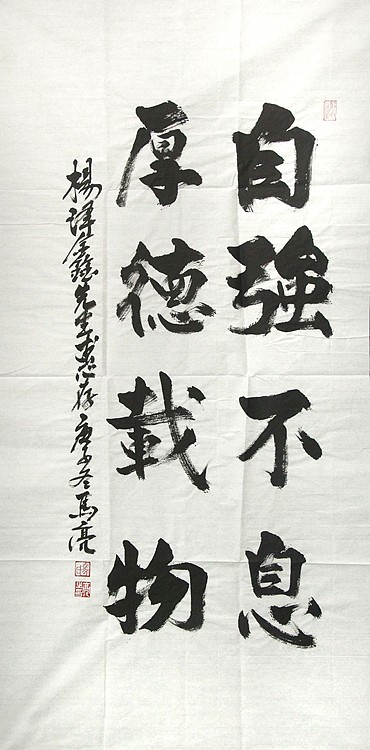 自強不息
厚德載物
楊譯鑫先生惠存 庚子冬 馬亮